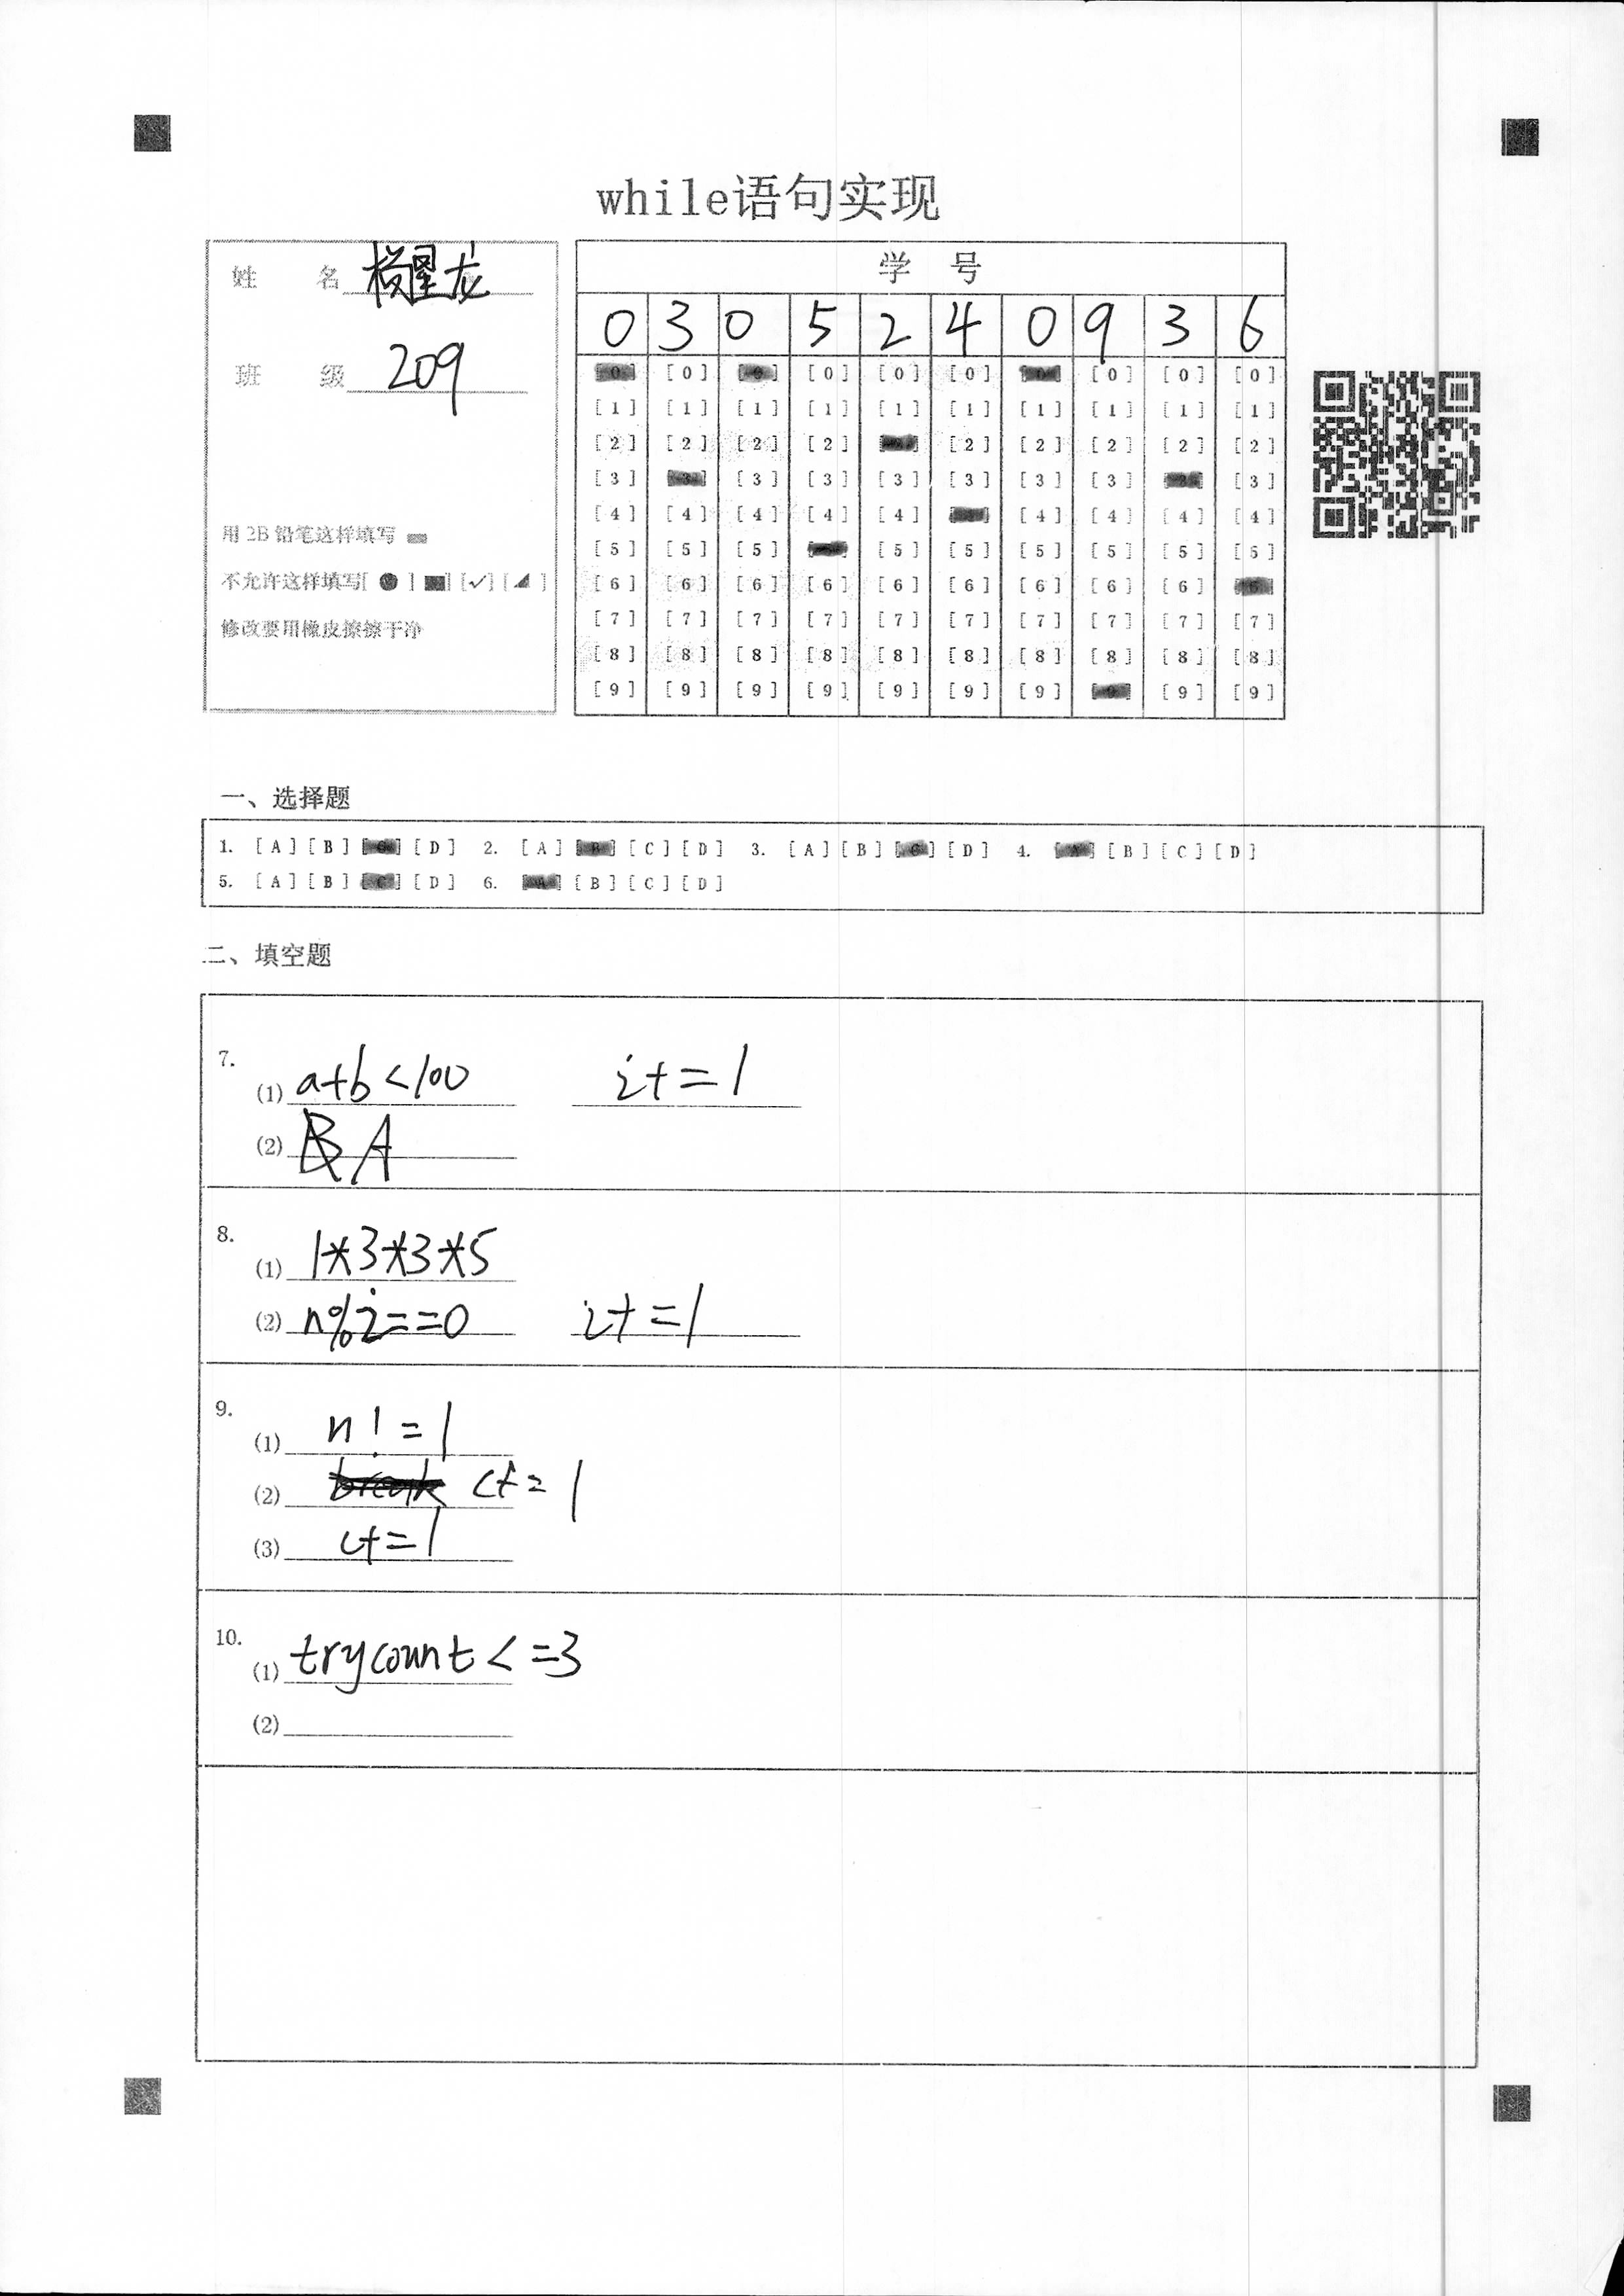 while语句实现
姓 名 杨星龙
班 级 209
用 2B 铅笔这样填写
不允许这样填写[ ● ] [■] [✓] [◢ ]
修改要用橡皮擦擦干净
学 号
0 3 0 5 2 4 0 9 3 6
[0] [0] [0] [0] [0] [0] [0] [0] [0] [0]
[1] [1] [1] [1] [1] [1] [1] [1] [1] [1]
[2] [2] [2] [2] [2] [2] [2] [2] [2] [2]
[3] [3] [3] [3] [3] [3] [3] [3] [3] [3]
[4] [4] [4] [4] [4] [4] [4] [4] [4] [4]
[5] [5] [5] [5] [5] [5] [5] [5] [5] [5]
[6] [6] [6] [6] [6] [6] [6] [6] [6] [6]
[7] [7] [7] [7] [7] [7] [7] [7] [7] [7]
[8] [8] [8] [8] [8] [8] [8] [8] [8] [8]
[9] [9] [9] [9] [9] [9] [9] [9] [9] [9]
一、选择题
1. [A] [B] [C] [D] 2. [A] [B] [C] [D] 3. [A] [B] [C] [D] 4. [A] [B] [C] [D]
5. [A] [B] [C] [D] 6. [A] [B] [C] [D]
二、填空题
7.
(1) a+b<100 i+=1
(2) B A
8.
(1) 1*3*3*5
(2) n%i==0 i+=1
9.
(1) n!=1
(2) break c+=1
(3) c+=1
10.
(1) trycount<=3
(2)